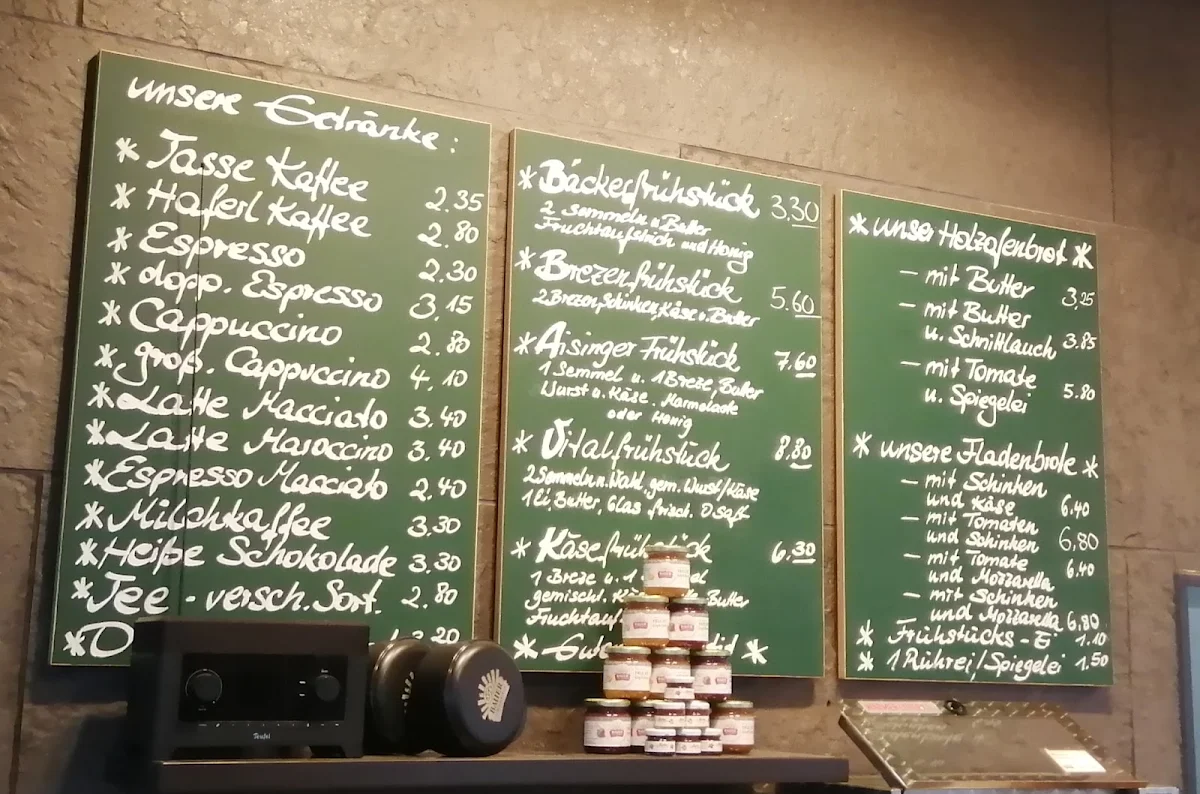 unsere Getränke:
* Tasse Kaffee 2.35
* Haferl Kaffee 2.80
* Espresso 2.30
* dopp. Espresso 3.15
* Cappuccino 2.80
* groß. Cappuccino 4.10
* Latte Macciato 3.40
* Latte Maroccino 3.40
* Espresso Macciato 2.40
* Milchkaffee 3.30
* Heiße Schokolade 3.30
* Tee - versch. Sort. 2.80
* O
* Bäckerfrühstück 3.30
2 Semmeln u. Butter
Fruchtaufstrich und Honig
* Brezenfrühstück 5.60
2 Brezen, Schinken, Käse u. Butter
* Aisinger Frühstück 7.60
1 Semmel u. 1 Breze, Butter
Wurst u. Käse. Marmelade
oder Honig
* Vitalfrühstück 8.80
2 Semmeln n. Wahl, gem. Wurst/Käse
1 Ei, Butter, Glas frisch. O saft
* Käsefrühstück 6.30
1 Breze u. 1
gemischt. Butter
* unser Holzofenbrot *
- mit Butter 3,25
- mit Butter
u. Schnittlauch 3.85
- mit Tomate
u. Spiegelei 5.80
* unsere Fladenbrote *
- mit Schinken
und Käse 6.40
- mit Tomaten
und Schinken 6,80
- mit Tomate 6.40
und Mozzarella
- mit Schinken
und Mozzarella 6,80
* Frühstücks-Ei 1.10
* 1 Rührei/Spiegelei 1.50
Teufel